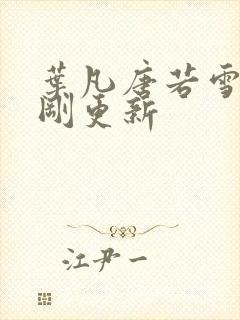 葉凡唐若雪
剛更新
江尹一